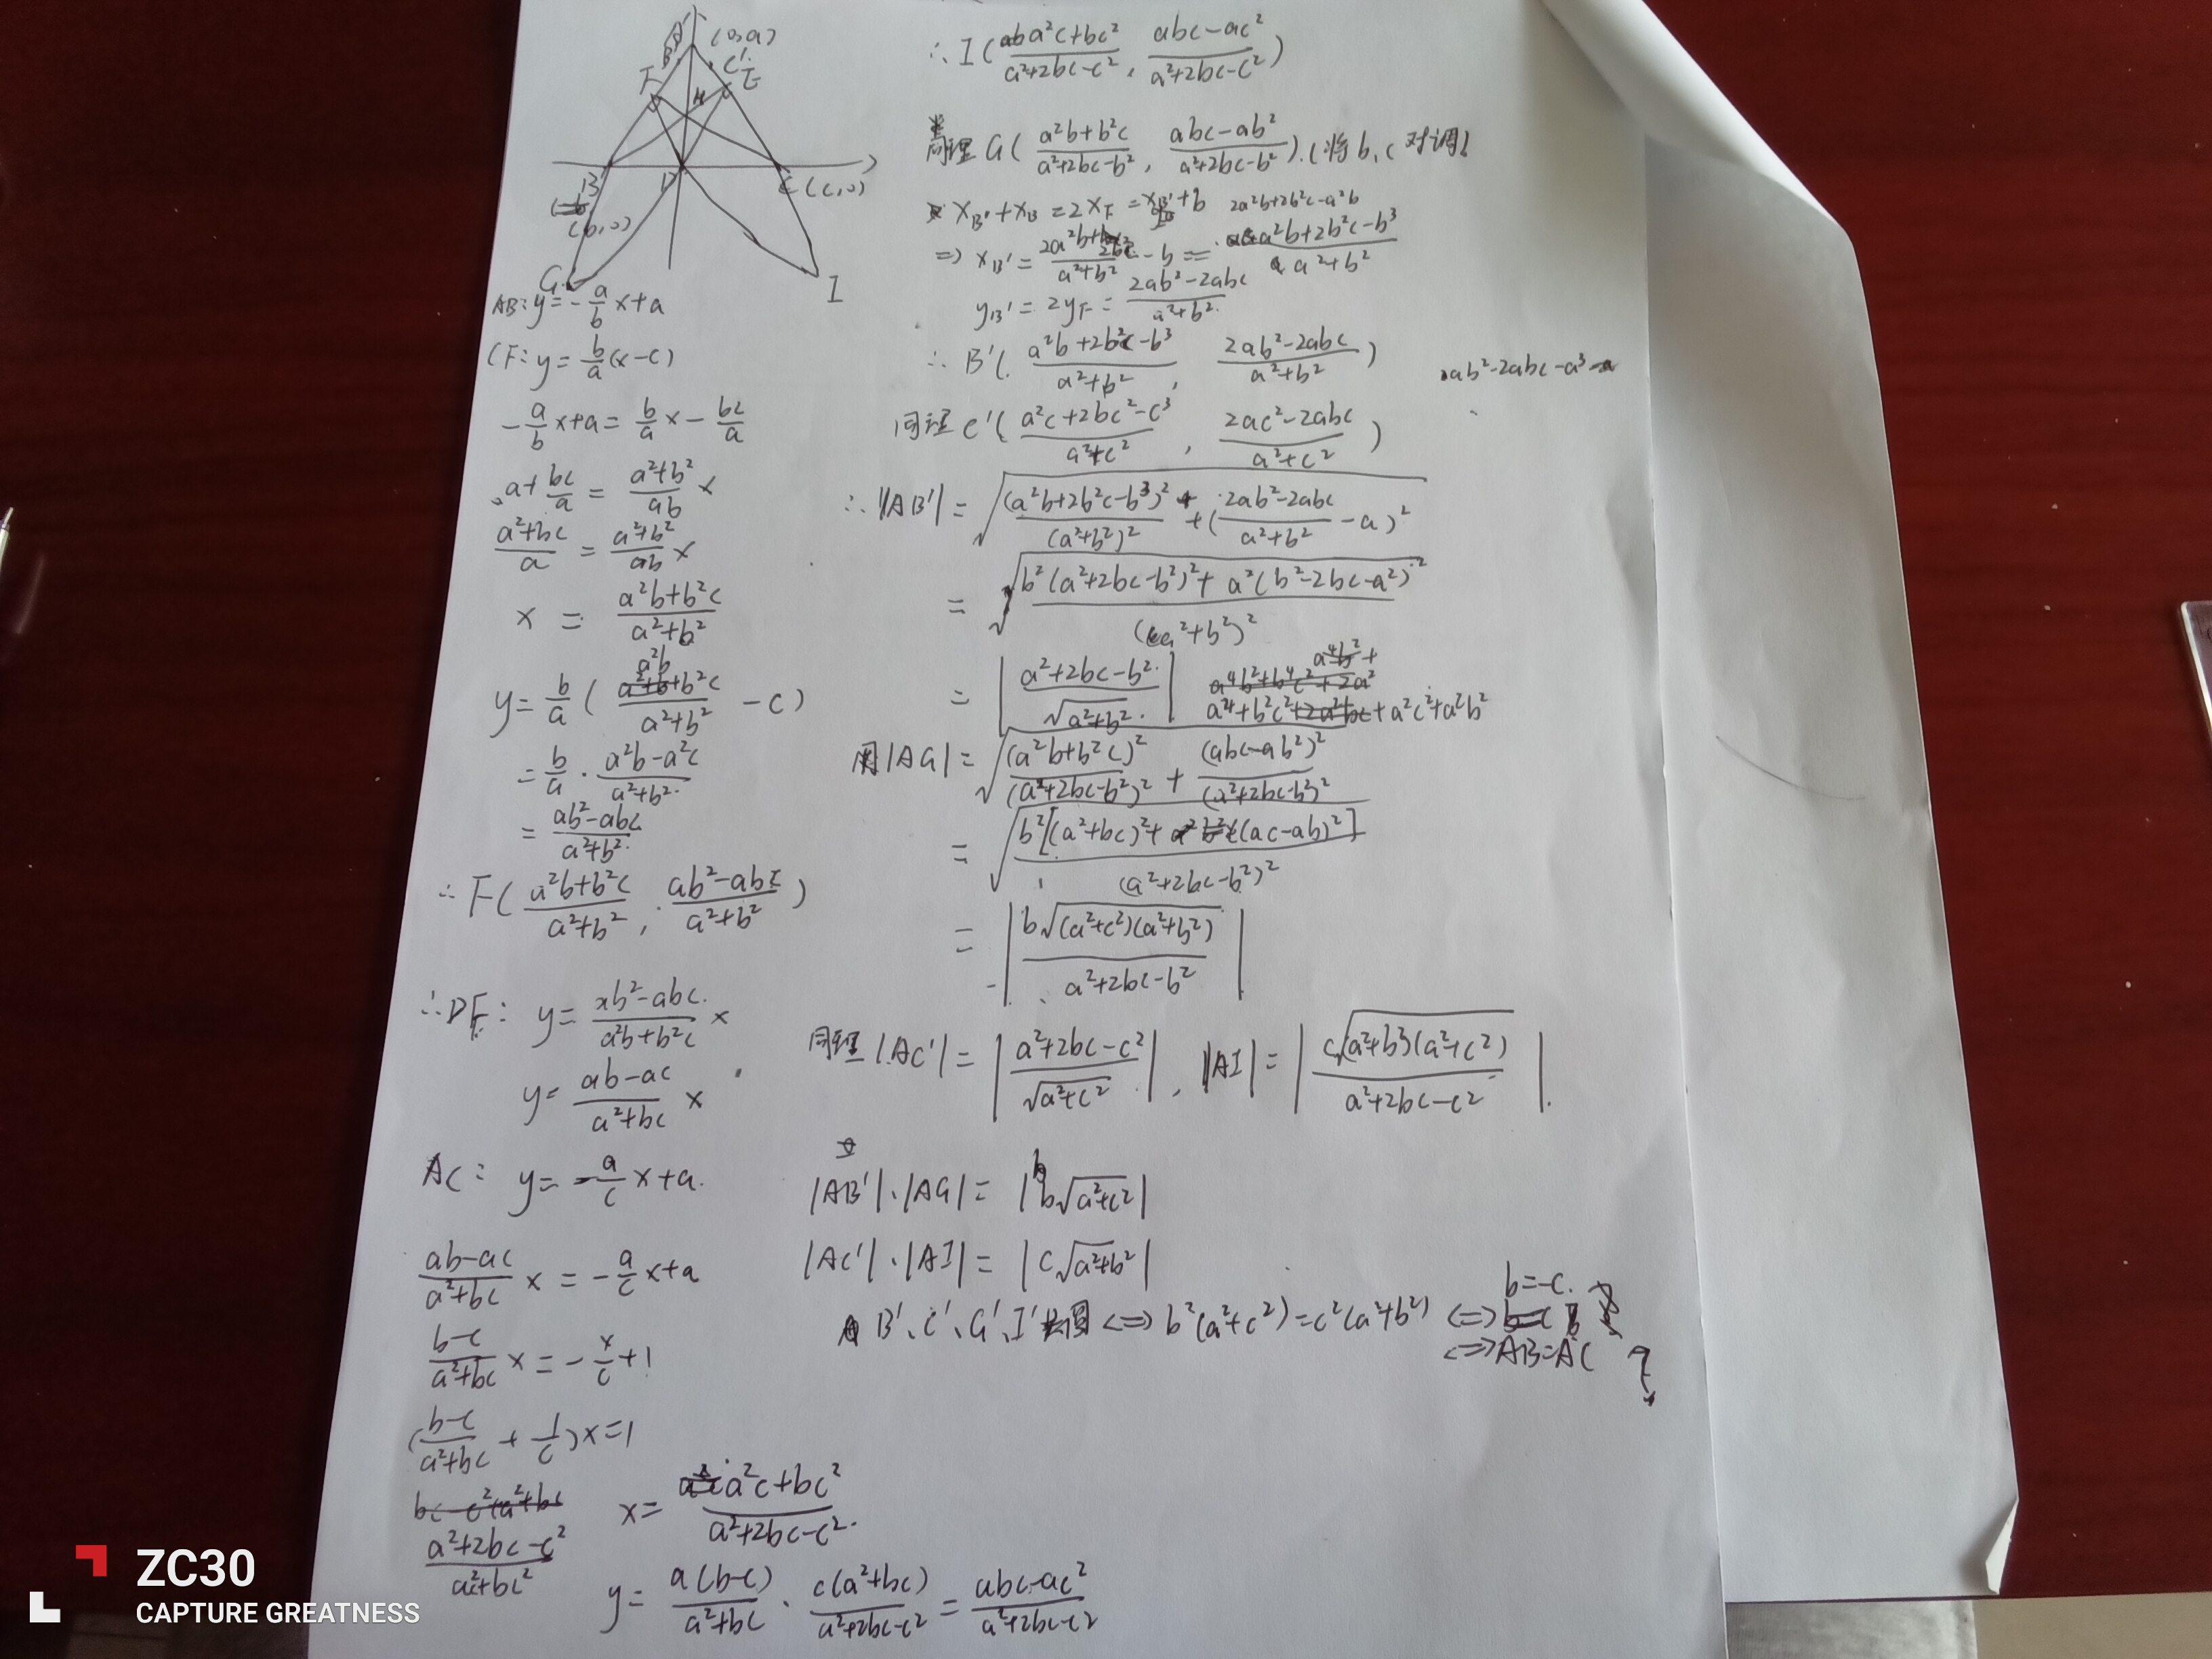 A
(0,a)
B'
C'
F
E
H
B
D
C(c,0)
(b,0)
G
I
AB: y=-\frac{a}{b}x+a
CF: y=\frac{b}{a}(x-c)
-\frac{a}{b}x+a=\frac{b}{a}x-\frac{bc}{a}
a+\frac{bc}{a}=\frac{a²+b²}{ab}x
\frac{a²+bc}{a}=\frac{a²+b²}{ab}x
x=\frac{a²b+b²c}{a²+b²}
y=\frac{b}{a}(\frac{a²b+b²c}{a²+b²}-c)
=\frac{b}{a}·\frac{a²b-a²c}{a²+b²}
=\frac{ab²-abc}{a²+b²}
∴F(\frac{a²b+b²c}{a²+b²}, \frac{ab²-abc}{a²+b²})
∴DF: y=\frac{ab²-abc}{a²b+b²c}x
y=\frac{ab-ac}{a²+bc}x
AC: y=-\frac{a}{c}x+a.
\frac{ab-ac}{a²+bc}x=-\frac{a}{c}x+a
\frac{b-c}{a²+bc}x=-\frac{x}{c}+1
(\frac{b-c}{a²+bc}+\frac{1}{c})x=1
\frac{a²+2bc-c²}{a²c+bc²}
x=\frac{a²c+bc²}{a²+2bc-c²}
y=\frac{a(b-c)}{a²+bc}·\frac{c(a²+bc)}{a²+2bc-c²}=\frac{abc-ac²}{a²+2bc-c²}
∴I(\frac{a²c+bc²}{a²+2bc-c²}, \frac{abc-ac²}{a²+2bc-c²})
同理G(\frac{a²b+b²c}{a²+2bc-b²}, \frac{abc-ab²}{a²+2bc-b²}).(将b,c对调)
x_{B'}+x_B=2x_F=x_{B'}+b
2a²b+2b²c-a²b
⇒x_{B'}=\frac{2a²b+2b²c}{a²+b²}-b=\frac{a²b+2b²c-b³}{a²+b²}
y_{B'}=2y_F=\frac{2ab²-2abc}{a²+b²}
∴B'(\frac{a²b+2b²c-b³}{a²+b²}, \frac{2ab²-2abc}{a²+b²})
2ab²-2abc-a³
同理C'(\frac{a²c+2bc²-c³}{a²+c²}, \frac{2ac²-2abc}{a²+c²})
∴|AB'|=\sqrt{\frac{(a²b+2b²c-b³)²}{(a²+b²)²}+(\frac{2ab²-2abc}{a²+b²}-a)²}
=\sqrt{\frac{b²(a²+2bc-b²)²+a²(b²-2bc-a²)²}{(a²+b²)²}}
=|\frac{a²+2bc-b²}{\sqrt{a²+b²}}|
a⁴+b²c²+a²c²+a²b²
|AG|=\sqrt{\frac{(a²b+b²c)²}{(a²+2bc-b²)²}+\frac{(abc-ab²)²}{(a²+2bc-b²)²}}
=\sqrt{\frac{b²[(a²+bc)²+(ac-ab)²]}{(a²+2bc-b²)²}}
=|\frac{b\sqrt{(a²+c²)(a²+b²)}}{a²+2bc-b²}|
同理|AC'|=|\frac{a²+2bc-c²}{\sqrt{a²+c²}}|, |AI|=|\frac{c\sqrt{(a²+b²)(a²+c²)}}{a²+2bc-c²}|.
|AB'|·|AG|=|b\sqrt{a²+c²}|
|AC'|·|AI|=|c\sqrt{a²+b²}|
B'、C'、G'、I'共圆⇔b²(a²+c²)=c²(a²+b²)⇔b=-c.
⇔AB=AC
ZC30
CAPTURE GREATNESS